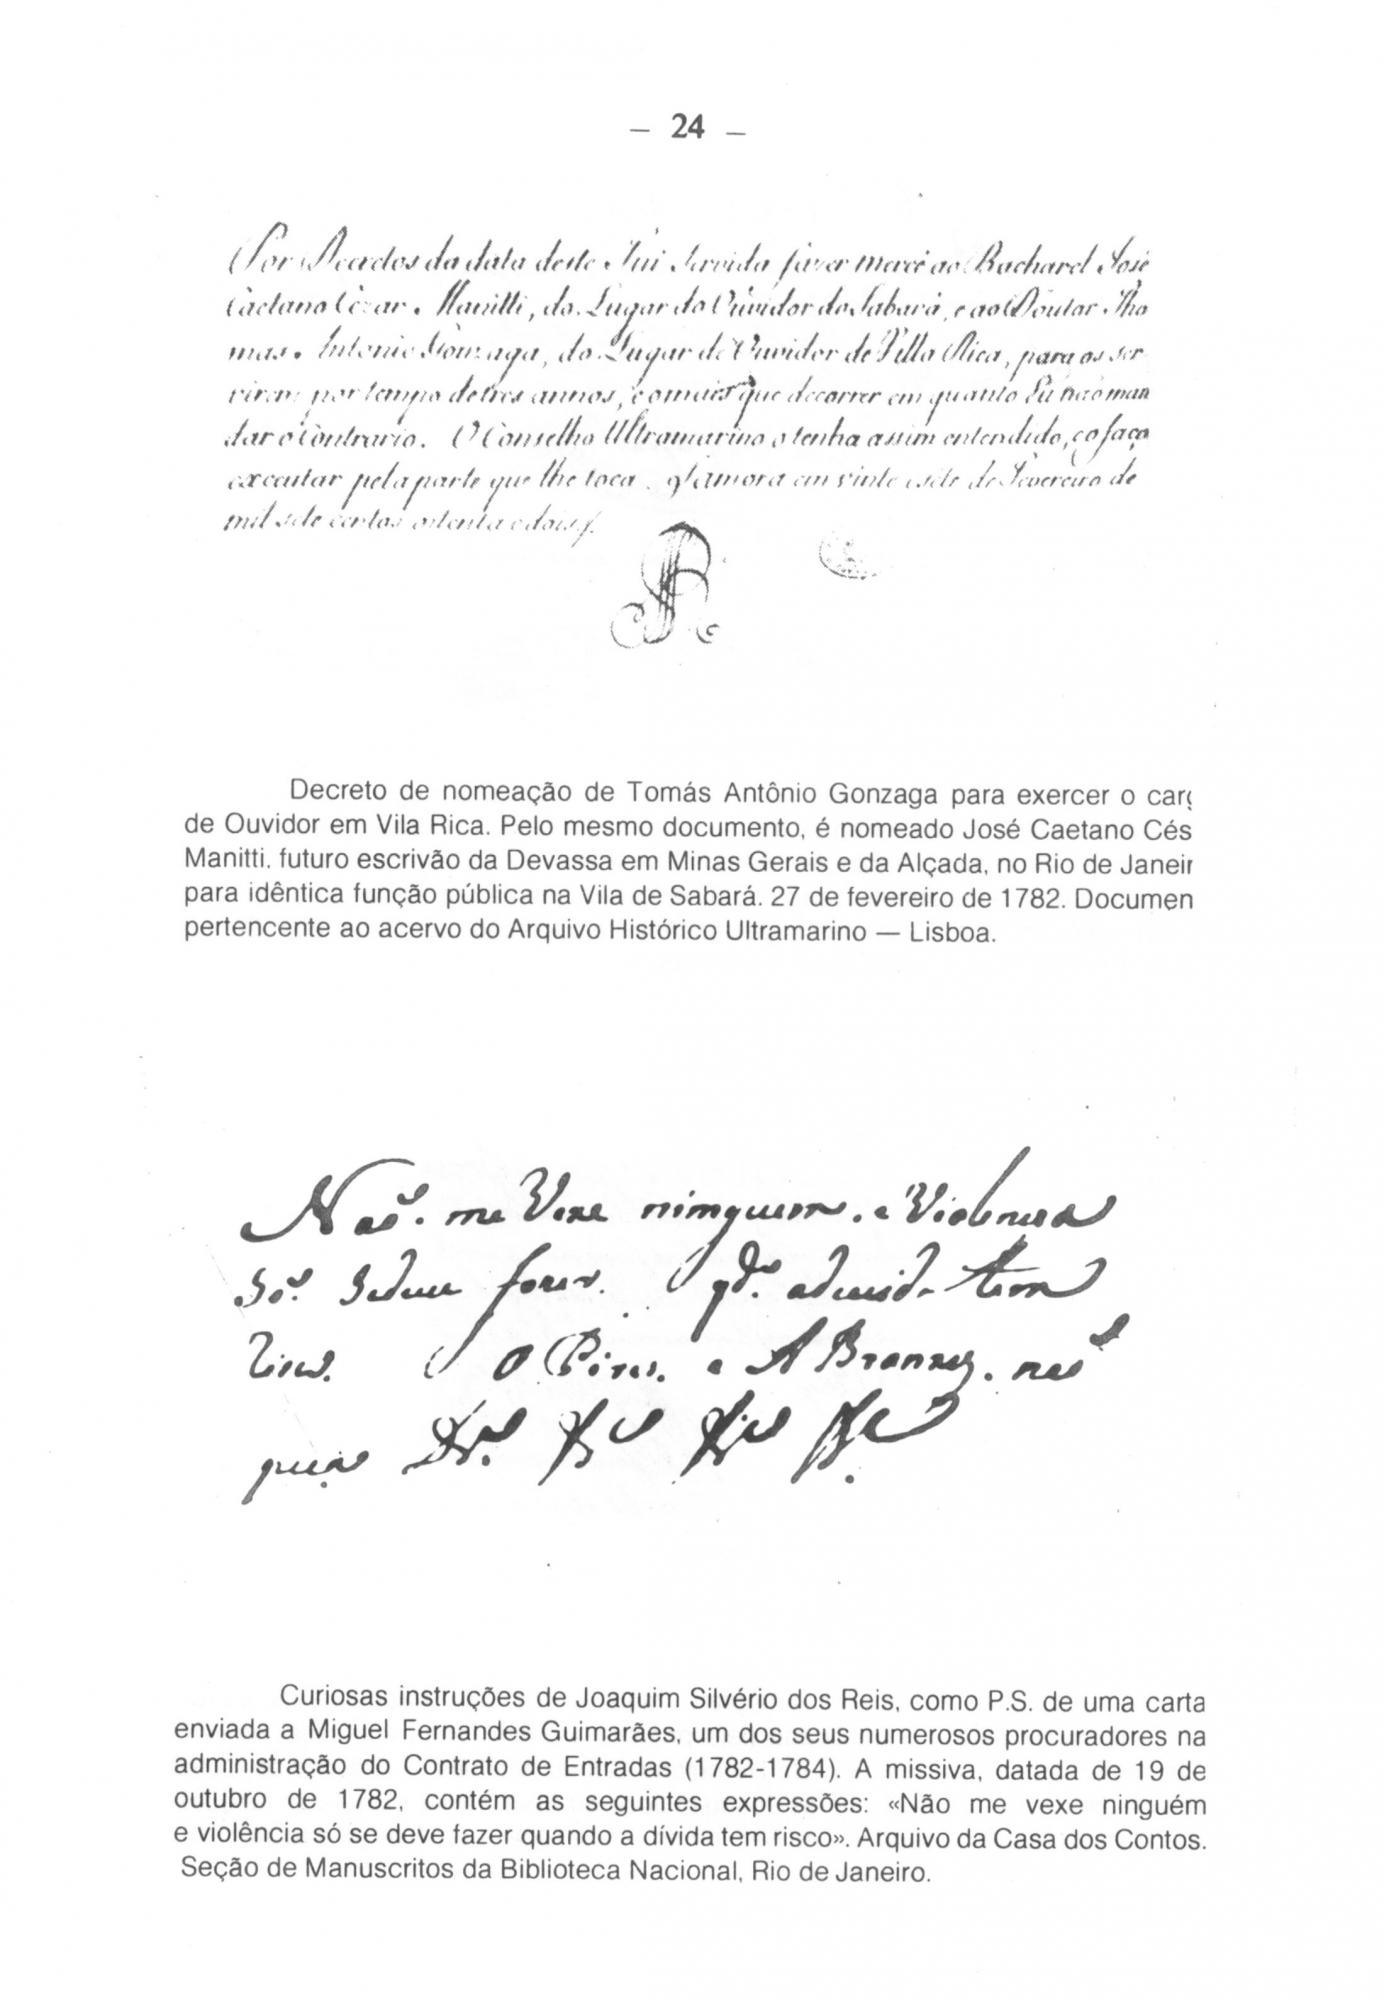 – 24 –
Por Decretos da data deste Fui Servida fazer mercê ao Bacharel José
Caetano Cezar Manitti, do Lugar do Ouvidor do Sabará, e ao Doutor Tho
mas Antonio Gonzaga, do Lugar de Ouvidor de Villa Rica, para os ser
virem por tempo de tres annos, e o mais que decorrer em quanto Eu não man
dar o Contrario. O Conselho Ultramarino o tenha assim entendido, e o faça
executar pela parte que lhe toca. em vinte e sete de Fevereiro de
mil sete centos oitenta e dois
Decreto de nomeação de Tomás Antônio Gonzaga para exercer o carg
de Ouvidor em Vila Rica. Pelo mesmo documento, é nomeado José Caetano Cés
Manitti, futuro escrivão da Devassa em Minas Gerais e da Alçada, no Rio de Janeir
para idêntica função pública na Vila de Sabará. 27 de fevereiro de 1782. Documen
pertencente ao acervo do Arquivo Histórico Ultramarino — Lisboa.
Naõ me Vexe ninguem. e Violencia
Só Sedeve fazer. qdo. adevida tem
Risco. O Pires. e A Branres. naõ
Curiosas instruções de Joaquim Silvério dos Reis, como P.S. de uma carta
enviada a Miguel Fernandes Guimarães, um dos seus numerosos procuradores na
administração do Contrato de Entradas (1782-1784). A missiva, datada de 19 de
outubro de 1782, contém as seguintes expressões: «Não me vexe ninguém
e violência só se deve fazer quando a dívida tem risco». Arquivo da Casa dos Contos.
Seção de Manuscritos da Biblioteca Nacional, Rio de Janeiro.